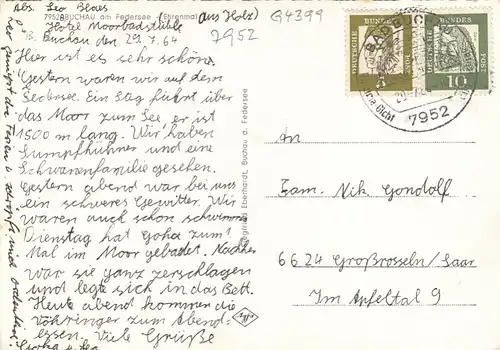 Abs. Leo Beaes
7952 BUCHAU am Federsee (Ehrenmal aus Holz)
Hotel Moorbadstüble
Buchau den 29.7.64
G4399
7952
Hier ist es sehr schön.
Gestern waren wir auf dem
Seebsee. Ein Steg führt über
das Moor zum See, er ist
1500 m lang. Wir haben
Sumpfhühner und eine
Schwanenfamilie gesehen.
Gestern abend war bei uns
ein schweres Gewitter. Wir
waren auch schon schwimmen
Dienstag hat Goha zum 1.
Mal im Moor gebadet. Nachher
war sie ganz zerschlagen
und legte sich in das Bett.
Heute abend kommen die
Vöhringer zum Abend-
essen. Viele Grüße
Leo genießt die Ferien u.
Eberhardt, Buchau a. Federsee
Agfa
DEUTSCHE BUNDESPOST
5
DEUTSCHE BUNDESPOST
10
BAD BUCHAU
Gicht
7952
An
Fam. Nik. Gondolf
6624 Großrosseln/Saar
Im Apfeltal 9